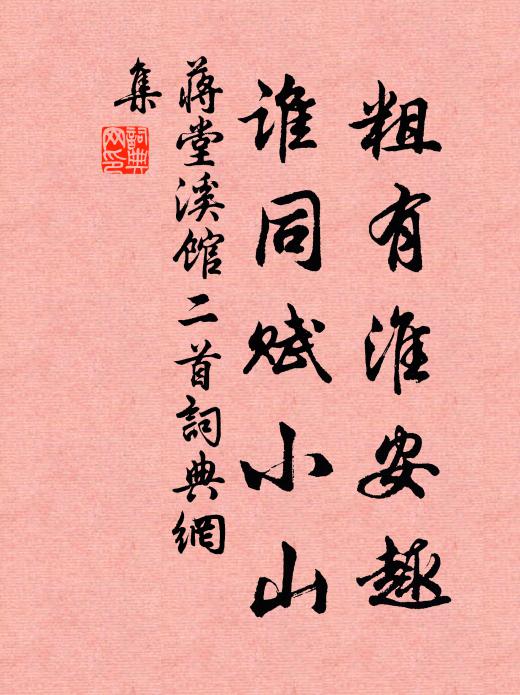 粗有淮安趣
谁同赋小山
蒋堂溪馆二首詞典網
集
詞典
网印